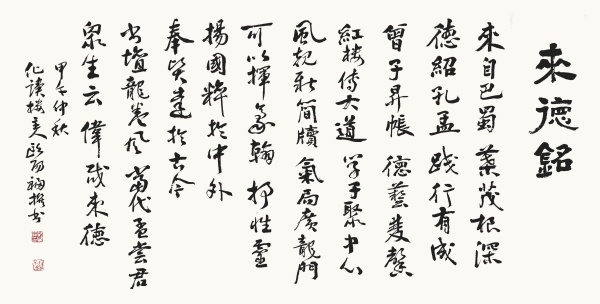 來德銘
來自巴蜀 葉茂根深
德紹孔孟 踐行有成
曾子昇帳 德藝雙馨
紅樓傳大道 學子聚中心
風起新簡牘 氣局廣龍門
可以揮翰 抒性靈
揚國粹於中外
奉賢達於古今
書壇龍卷風 當代孟嘗君
眾生云 偉哉來德
甲午仲秋
讀樓主 歐陽 書